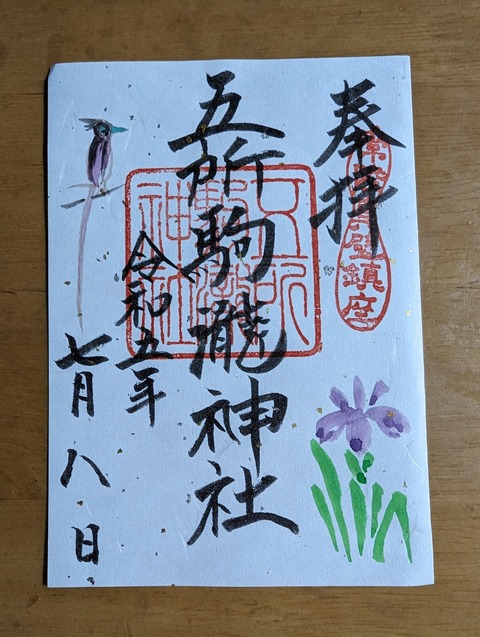 奉拝
壁鎮座
五所駒瀧神社
五所
駒瀧
神社
令和五年
七月八日